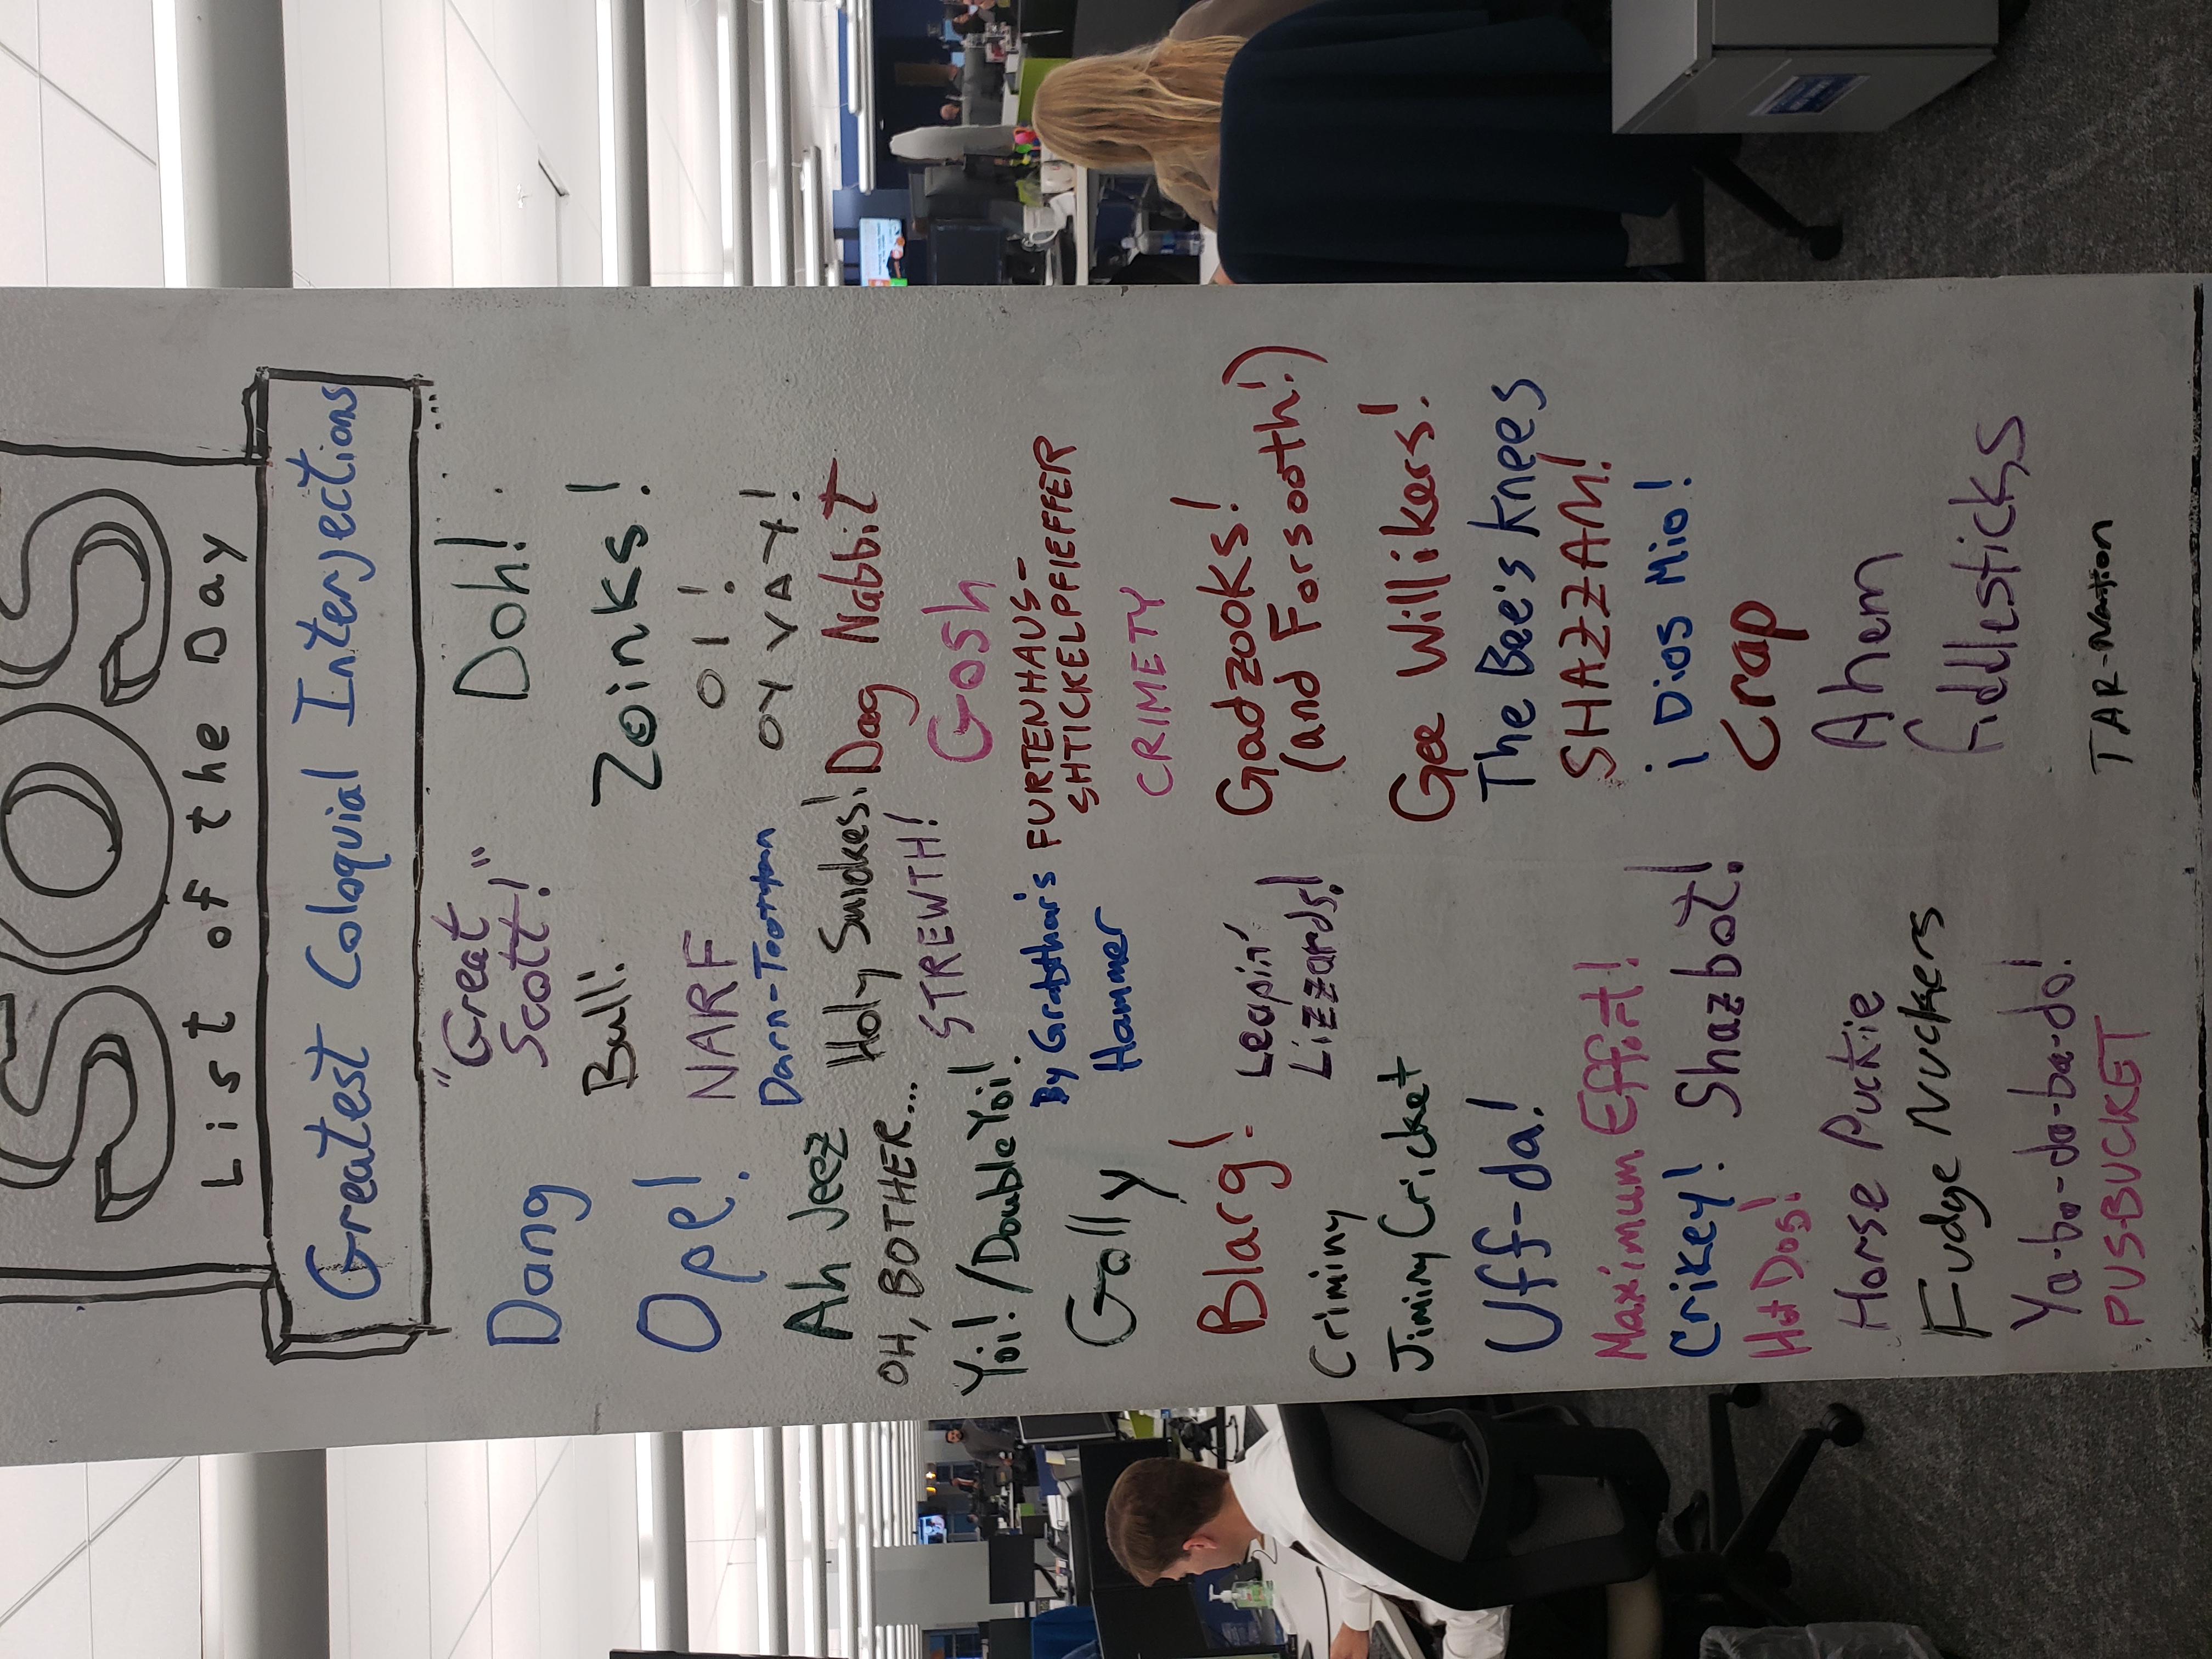 SOS
List of the Day
Greatest Coloquial Interjections
Dang
Ope!
Ah Jeez
OH, BOTHER...
Yoi! / Double Yoi!
Golly
Blarg!
Criminy
Jiminy Cricket
Uff-da!
Maximum Effort!
Crikey!
Hot Dog!
Horse Puckie
Fudge Nuckers
Ya-ba-da-ba-do!
PUSBUCKET
"Great
Scott!"
Bull!
NARF
Darn-Tootytan
Holy Smokes!
STREWTH!
By Grabthar's
Hammer
Leapin'
Lizzards!
Shazbot!
Doh!
Zoinks!
OI!
OY VAY!
Dag Nabbit
Gosh
FURTENHAUS-
SHTICKELPFIEFFER
CRIMETY
Gadzooks!
(and Forsooth!)
Gee Willikers!
The Bee's Knees
SHAZZAM!
¡Dios Mio!
Crap
Ahem
Fiddlesticks
TAR-Nation